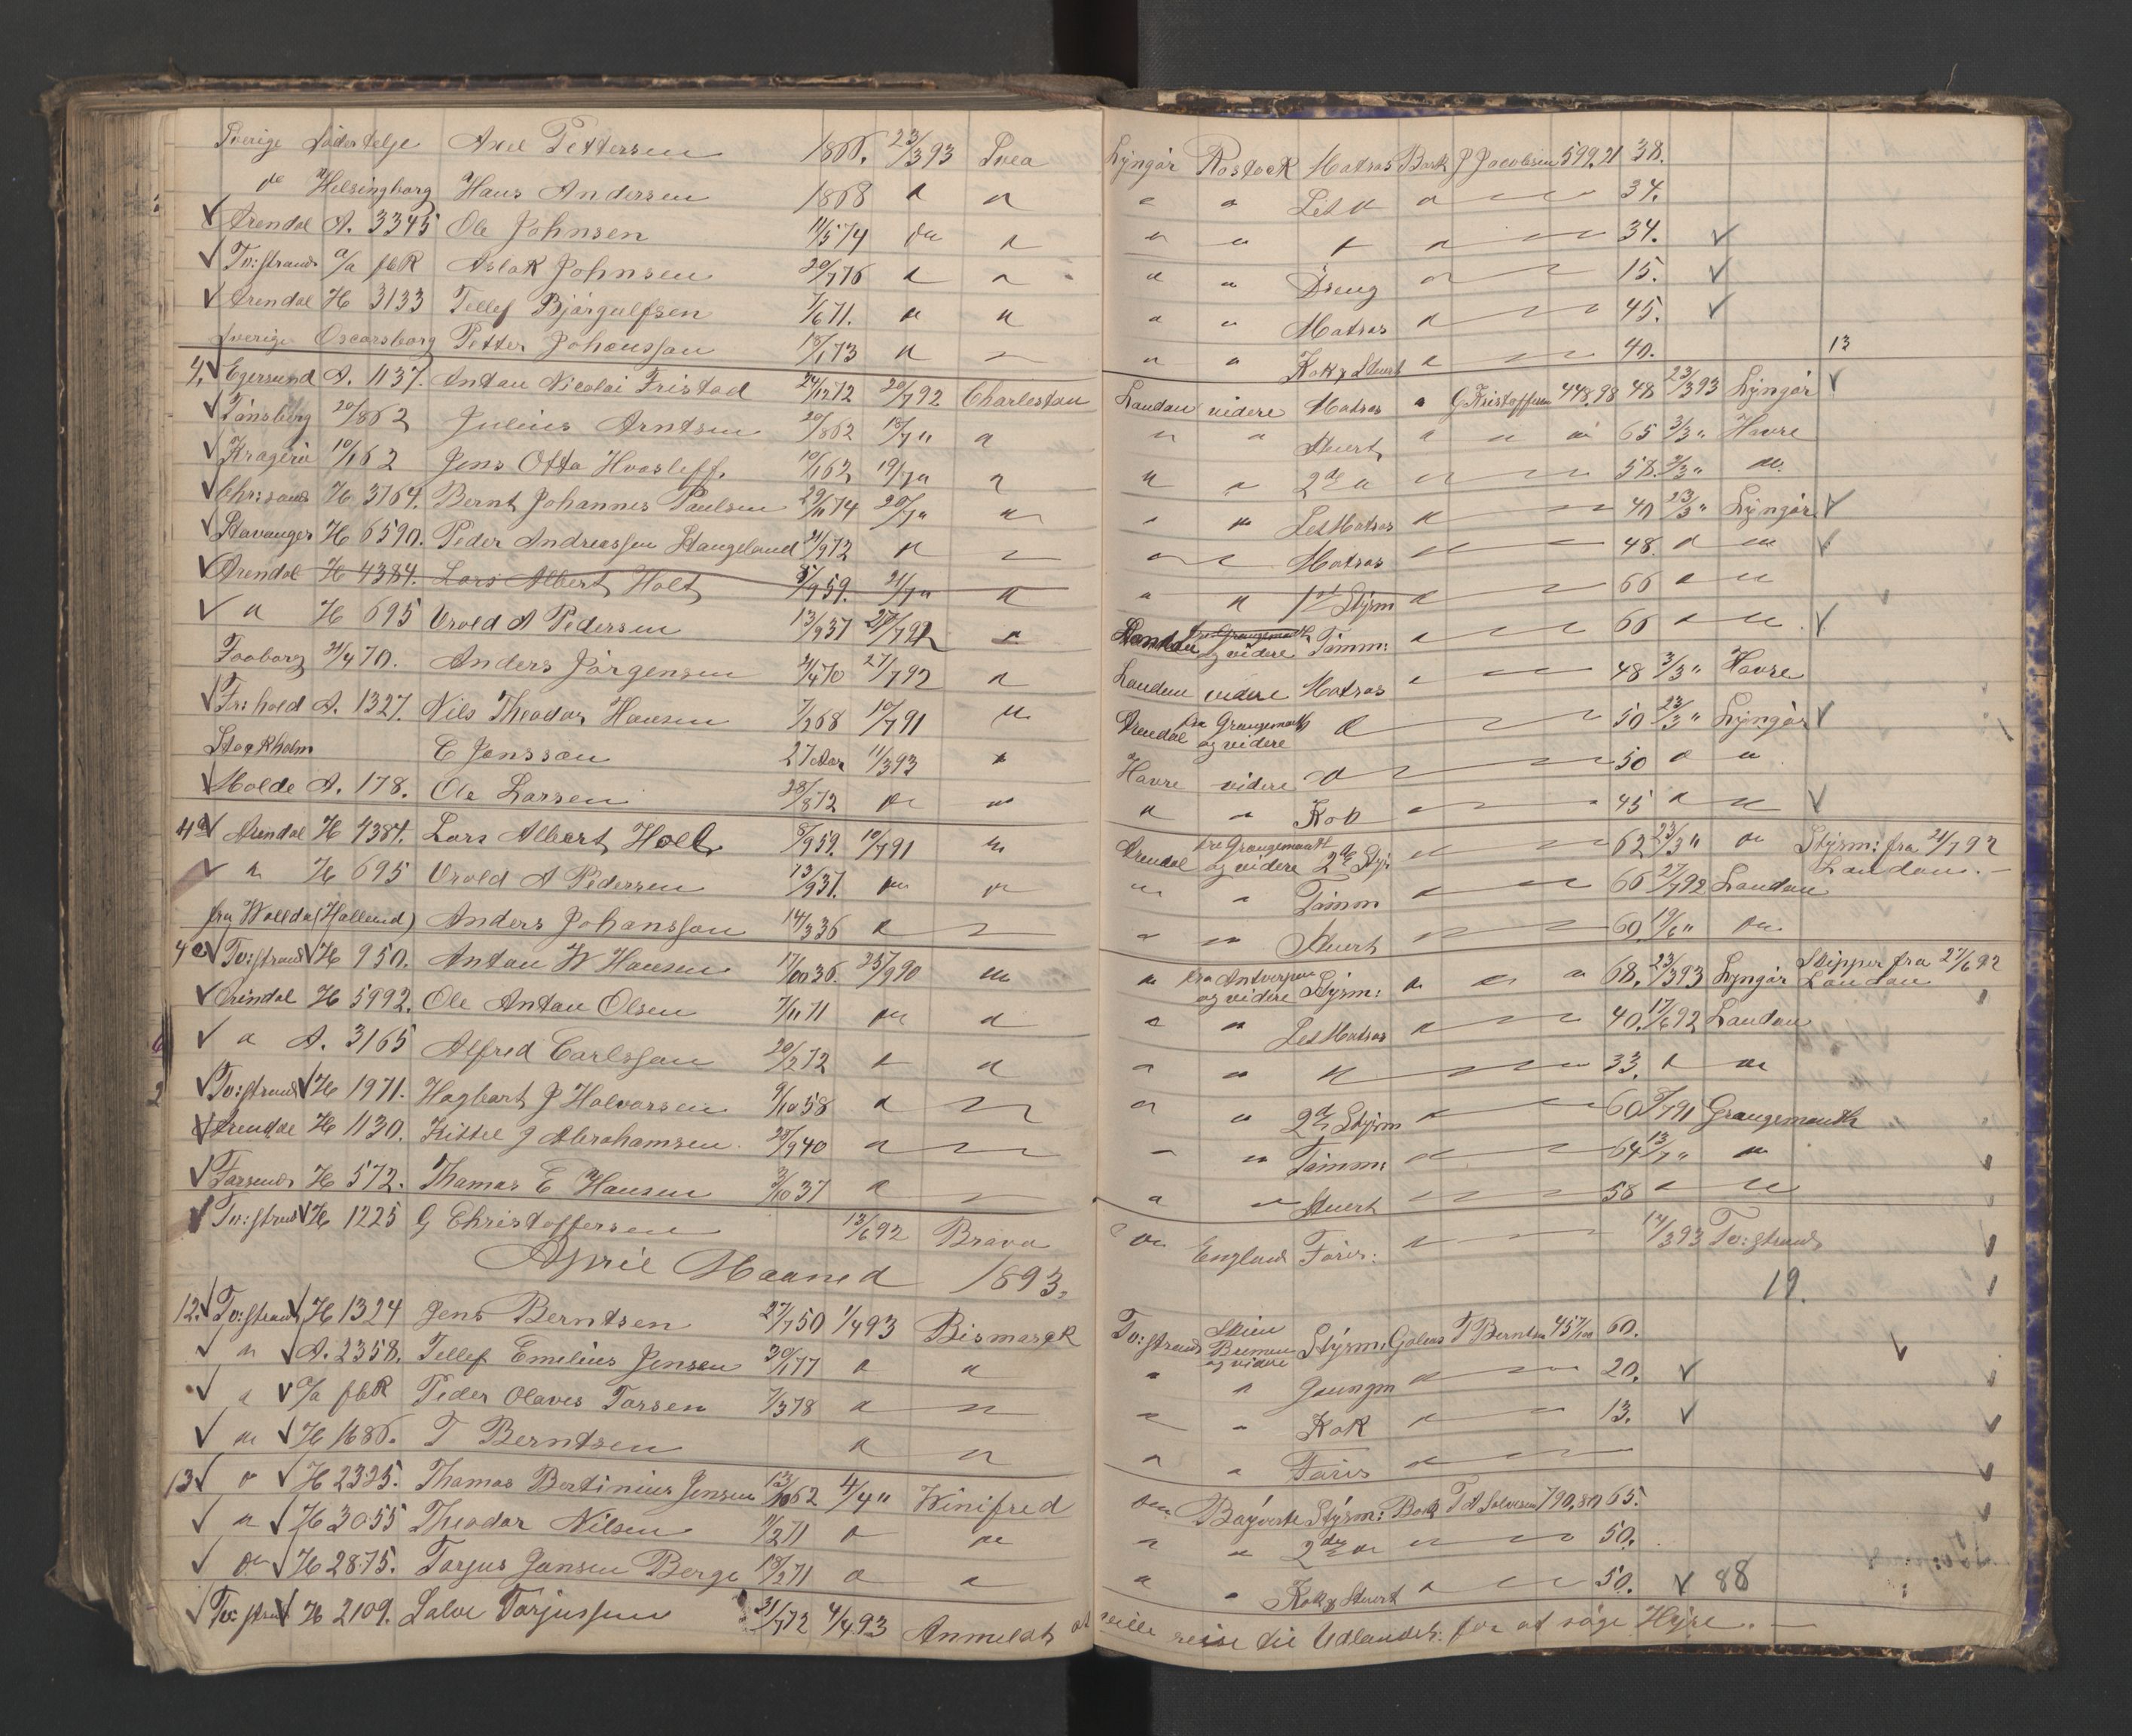 Sverige Södertelje Axel Pettersen 1866. 23/3 93 Svea Lyngör Rostock Matros Bark J Jacobsen 599,21 38.
do Helsingborg Hans Andersen 1868 " " " " Let " " 34.
Arendal A. 3345 Ole Johnsen 11/5 74 " " " " " " 34.
Tv:strand a/a fbR Aslak Johnsen 20/7 76 " " " " Dreng " 15.
Arendal H 3133 Tellef Björgulfsen 7/6 71. " " " " Matros " 45.
Sverige Oscarsborg Petter Johansson 18/1 73 " " " " Kok & Stuert " 40. 13
4. Egersund A. 1137. Antan Nicolai Tristad 24/12 72 20/7 92 Charlestan Landan videre Matros " G Kristoffersen 448,98 48 23/3 93 Lyngör
Tönsberg 20/8 62 Julius Arntsen 20/8 62 18/7 " " " " Stuert " " " 65 3/3 " Havre
Kragerö 10/1 62 Jens Otto Hvasleff. 10/1 62 19/7 " " " " 2de " " 58. 3/3 " do.
Chr:sand H 3764. Bernt Johannes Paulsen 29/11 74 20/7 " " " " Let Matros " 40 23/3 " Lyngör
Stavanger H 6590. Peder Andreassen Stangeland 21/9 72 " " " " Matros " 48. " "
Arendal H 4384. Lars Albert Holt 8/9 59. 21/7 " " " " 1st Styrm " 66 " "
" H 695 Urold A Pedersen 13/9 37 27/7 92 " Landan og videre Tömm: " 66 " "
Faaborg 21/4 70. Anders Jörgensen 21/4 70 27/7 92 " Landan videre Matros " 48 3/3 " Havre
Fr:hald A. 1327. Nils Theodor Hansen 7/2 68 10/7 91 " Arendal fra Grangemouth og videre " 50 23/3 " Lyngör
Stockholm C Jonsson 27 Aar 11/3 93 " Havre videre " 50 " "
Molde A. 178. Ole Larsen 28/8 72 " " " " Kok " 45 " "
4a Arendal H 4384. Lars Albert Holt 8/9 59. 10/7 91 " Arendal fra Grangemouth og videre 2de Styr " 62 23/3 " " Styrm: fra 21/7 92 Landan.
" H 695 Urold A Pedersen 13/9 37. " " " " Tömm " 66 27/7 92 Landan
fra Wallda (Halland) Anders Johansson 14/3 36 " " " " Stuert " 60 19/6 " "
Tv:strand H 950. Antan W Hansen 17/10 36. 25/9 90 " " fra Antverpen og videre Styrm: " " " 68. 23/3 93 Lyngör Skipper fra 27/6 92 Landan
Arendal H 5992. Ole Antan Olsen 7/11 71 " " " " Let Matros " 40. 17/6 92 Landan
" A. 3165 Alfred Carlsson 20/2 72 " " " " " " 33. " "
Tv:strand H 1971. Hagbart J Halvorsen 9/10 58 " " " " 2de Styrm " 60 9/7 91 Grangemouth
Arendal H 1130. Kittel J Abrahamsen. 28/9 40 " " " " Tömm: " 64 13/7 " "
Farsund H 572. Thomas E Hansen 3/10 37 " " " " Stuert " 58 " "
Tv:strand H 1225 G Christoffersen 13/6 92 Brava " England Förer: " 14/3 93 Tv:strand
April Maaned 1893. 19.
12. Tv:strand H 1324 Jens Berntsen 27/7 50 1/4 93 Bismarck Tv:strand Skien Bremen og videre Styrm: Galeas T Berntsen 45 60.
" A. 2358. Tellef Emilius Jensen 30/1 77 " " " " Jungm " 20.
" a/a fbR Peder Olaves Tarsen 7/3 78 " " " " Kok " 13.
" H 1686. T Berntsen " " " " Förer "
13 " H 2325. Thomas Bertinius Jensen 13/10 62 4/4 " Winifred " Styrm: Bark T A Salvesen 790,80 65.
" H 3055 Theodor Nilsen 11/2 71 " " " " 2de " " 50.
" H 2875. Tarjus Jansen Berge 18/2 71 " " " " Kok & Stuert " 50. 88
Tv:strand H 2109. Salve Tarjussen 31/7 72 4/4 93 Anmeldt at ville reise til Udlandet: for at söge Hyre.